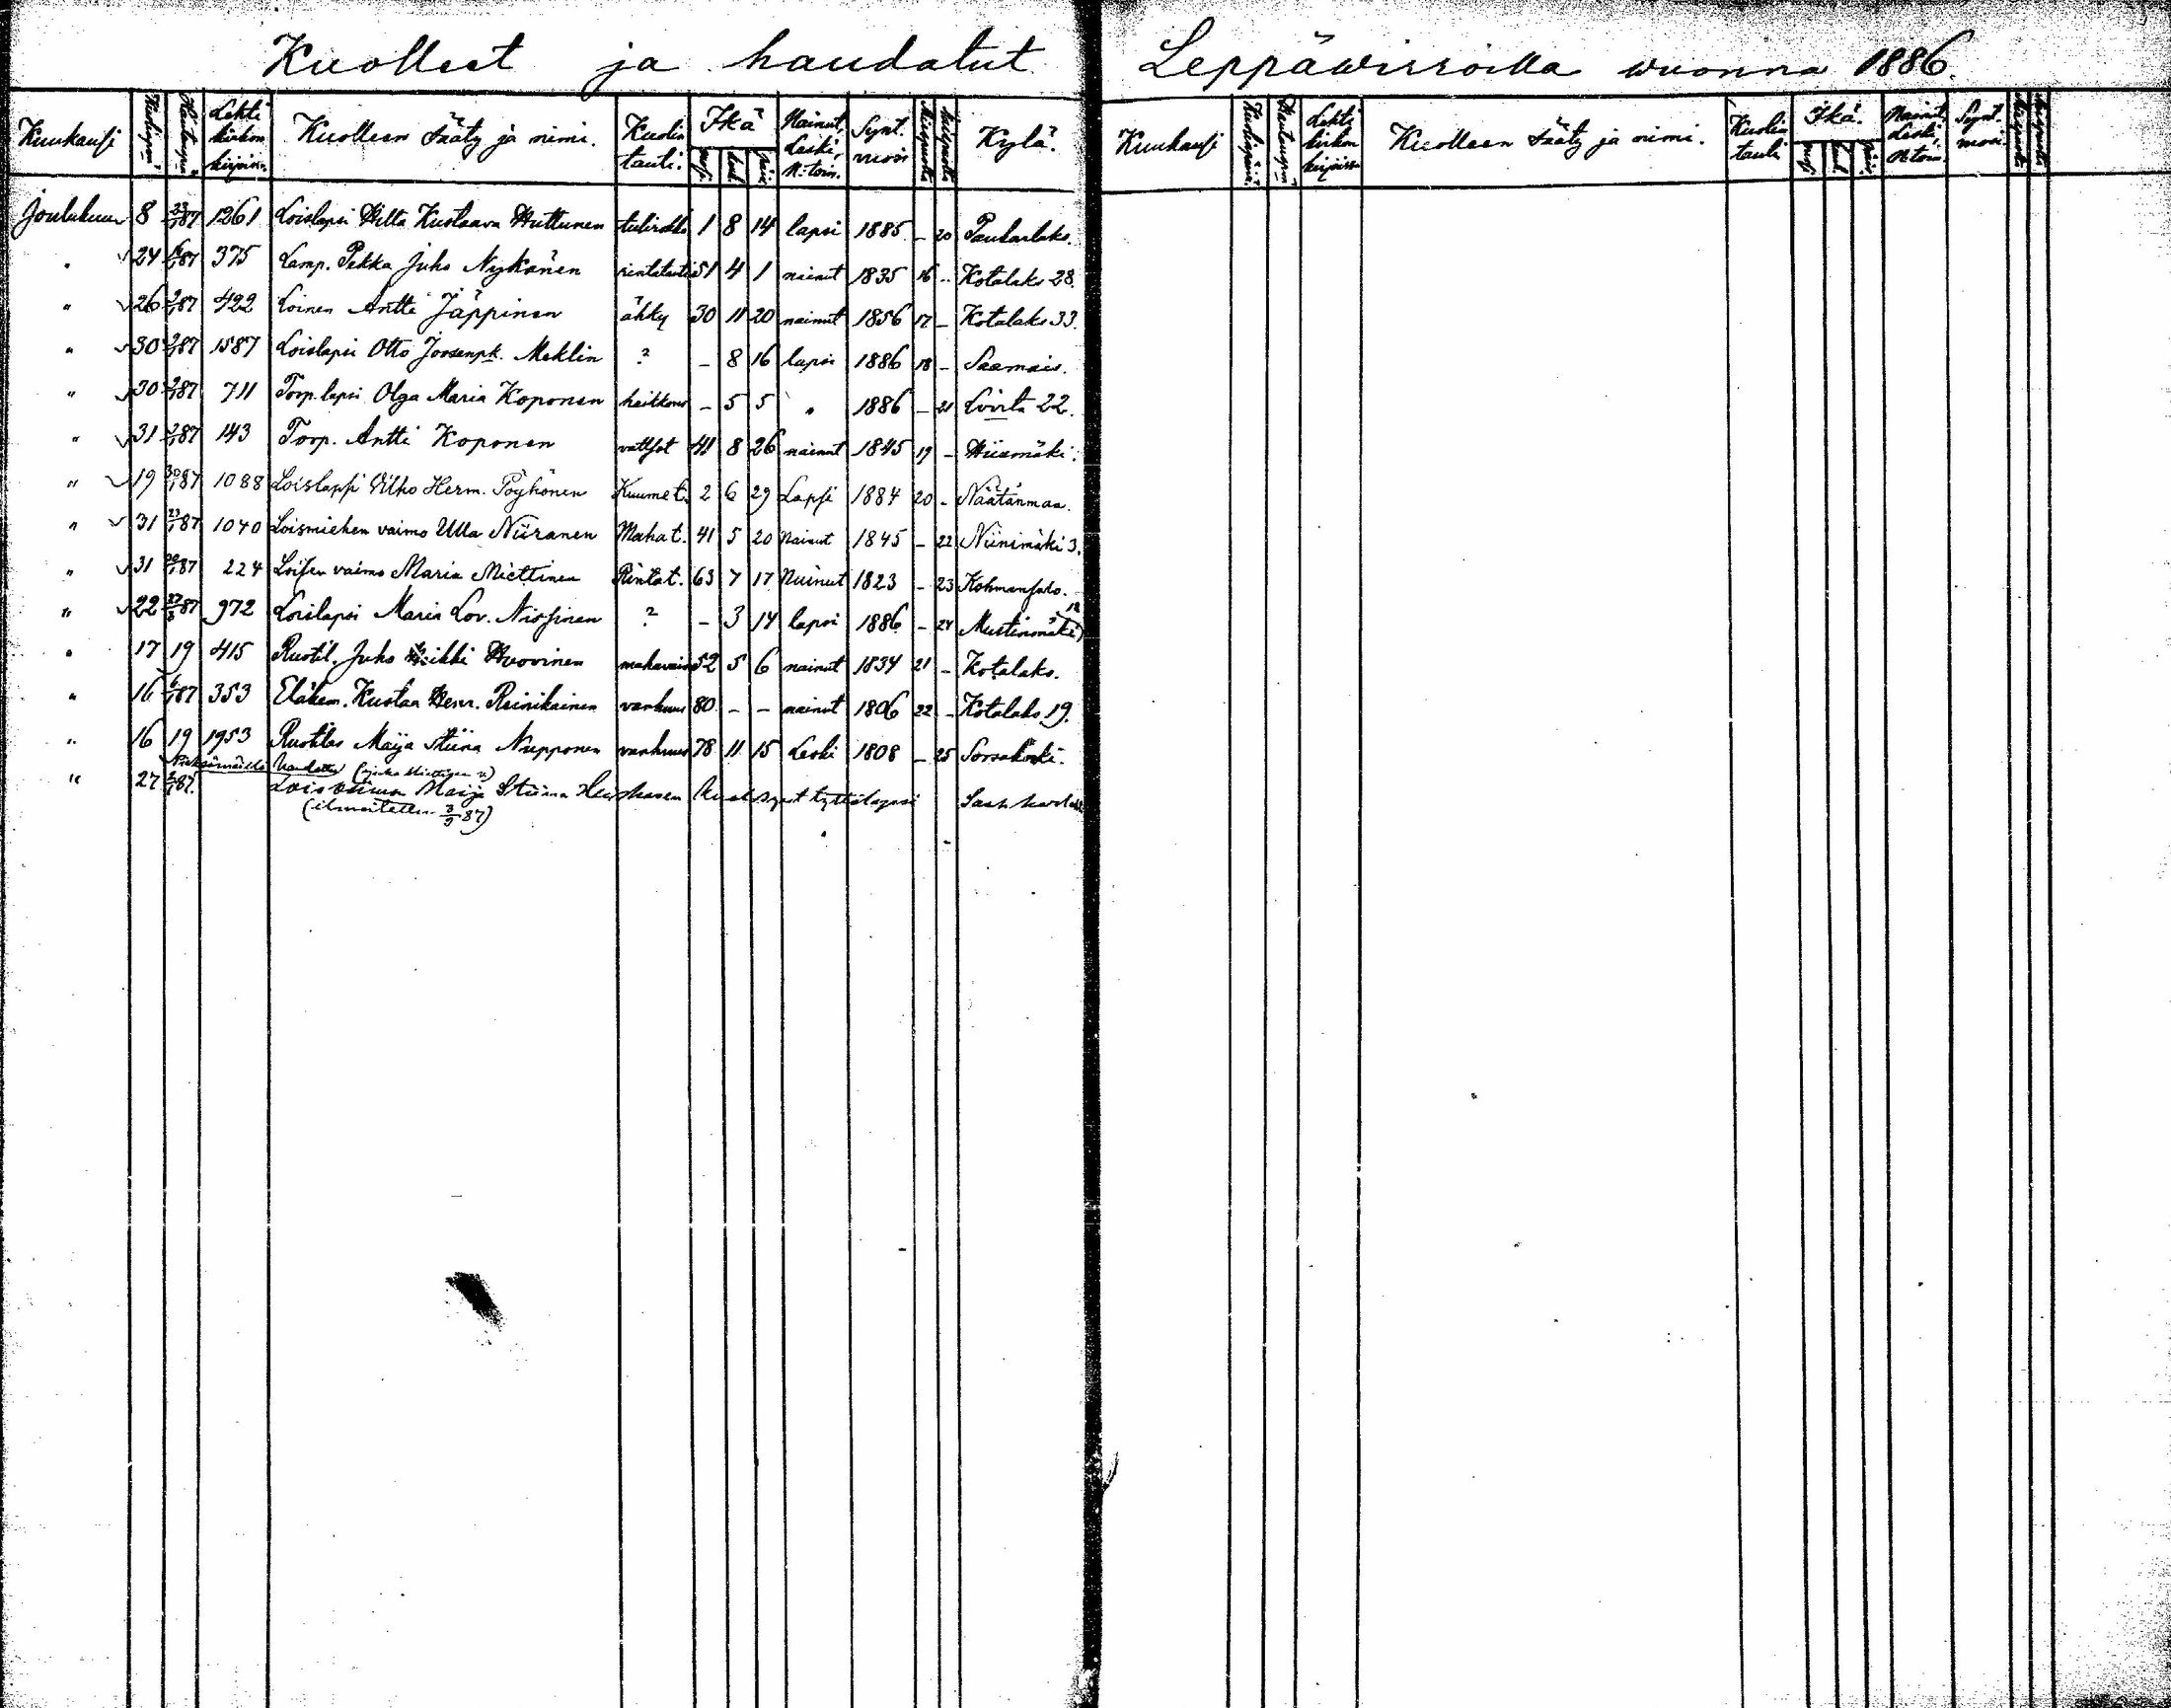 Kuolleet ja haudatut Leppäwirroilla wuonna 1886.
Kuukausi Lehti kirkon kirjoissa Kuolleen sääty ja nimi. Kuolin tauti. Ikä Nainut, Leski, N:toin. Synt. vuosi Kylä.
Joulukuun 8 23/1 87 1261 Loislapsi Hilta Kustaava Huttunen tulirokko 1 8 14 lapsi 1885 - 20 Paukarlaks.
" 24 6/1 87 375 Lamp. Pekka Juho Nykänen rintatauti 51 4 1 nainut 1835 16 - Kotalaks 28.
" 26 2/1 87 422 Loinen Antti Jäppinen ähky 30 11 20 nainut 1856 17 - Kotalaks 33.
" 30 2/1 87 1587 Loislapsi Otto Joosenpk. Meklin ? - 8 16 lapsi 1886 18 - Saamais.
" 30 2/1 87 711 Torp. lapsi Olga Maria Koponen heikkous - 5 5 " 1886 - 21 Luirta 22.
" 31 2/1 87 143 Torp. Antti Koponen 41 8 26 nainut 1845 19 - Hiismäki.
" 19 30/1 87 1088 Loislapsi Vilho Herm. Pöyhönen Kuumet. 2 6 29 Lapsi 1884 20 - Näätänmaa.
" 31 23/1 87 1040 Loismiehen vaimo Ulla Niiranen Mahat. 41 5 20 Nainut 1845 - 22 Niinimäki 3.
" 31 87 224 Loisen vaimo Maria Miettinen Rintat. 63 7 17 Nainut 1823 - 23 Kohmansalo.
" 22 27/3 87 972 Loislapsi Maria Lov. Nissinen ? - 3 14 lapsi 1886 - 24 Mustinmäki 12
" 17 19 415 Ruotil. Juho Heikki Huovinen mahavaiva 52 5 6 nainut 1834 21 - Kotalaks.
" 16 6/1 87 353 Eläkem. Kustaa Henr. Reinikainen vanhuus 80 - - nainut 1806 22 - Kotalaks 19.
" 16 19 1953 Ruotilas Maija Stiina Nupponen vanhuus 78 11 15 Leski 1808 - 25 Sorsakoski.
haudattu
" 27 2/1 87 Lois vaimon Maija Stiina tyttölapsi
(ilmoitettu 3/9 87)
Kuukausi Lehti kirkon kirjoissa Kuolleen sääty ja nimi. Kuolin tauti Ikä. Nainut, Leski, N:toin. Synt. vuosi.